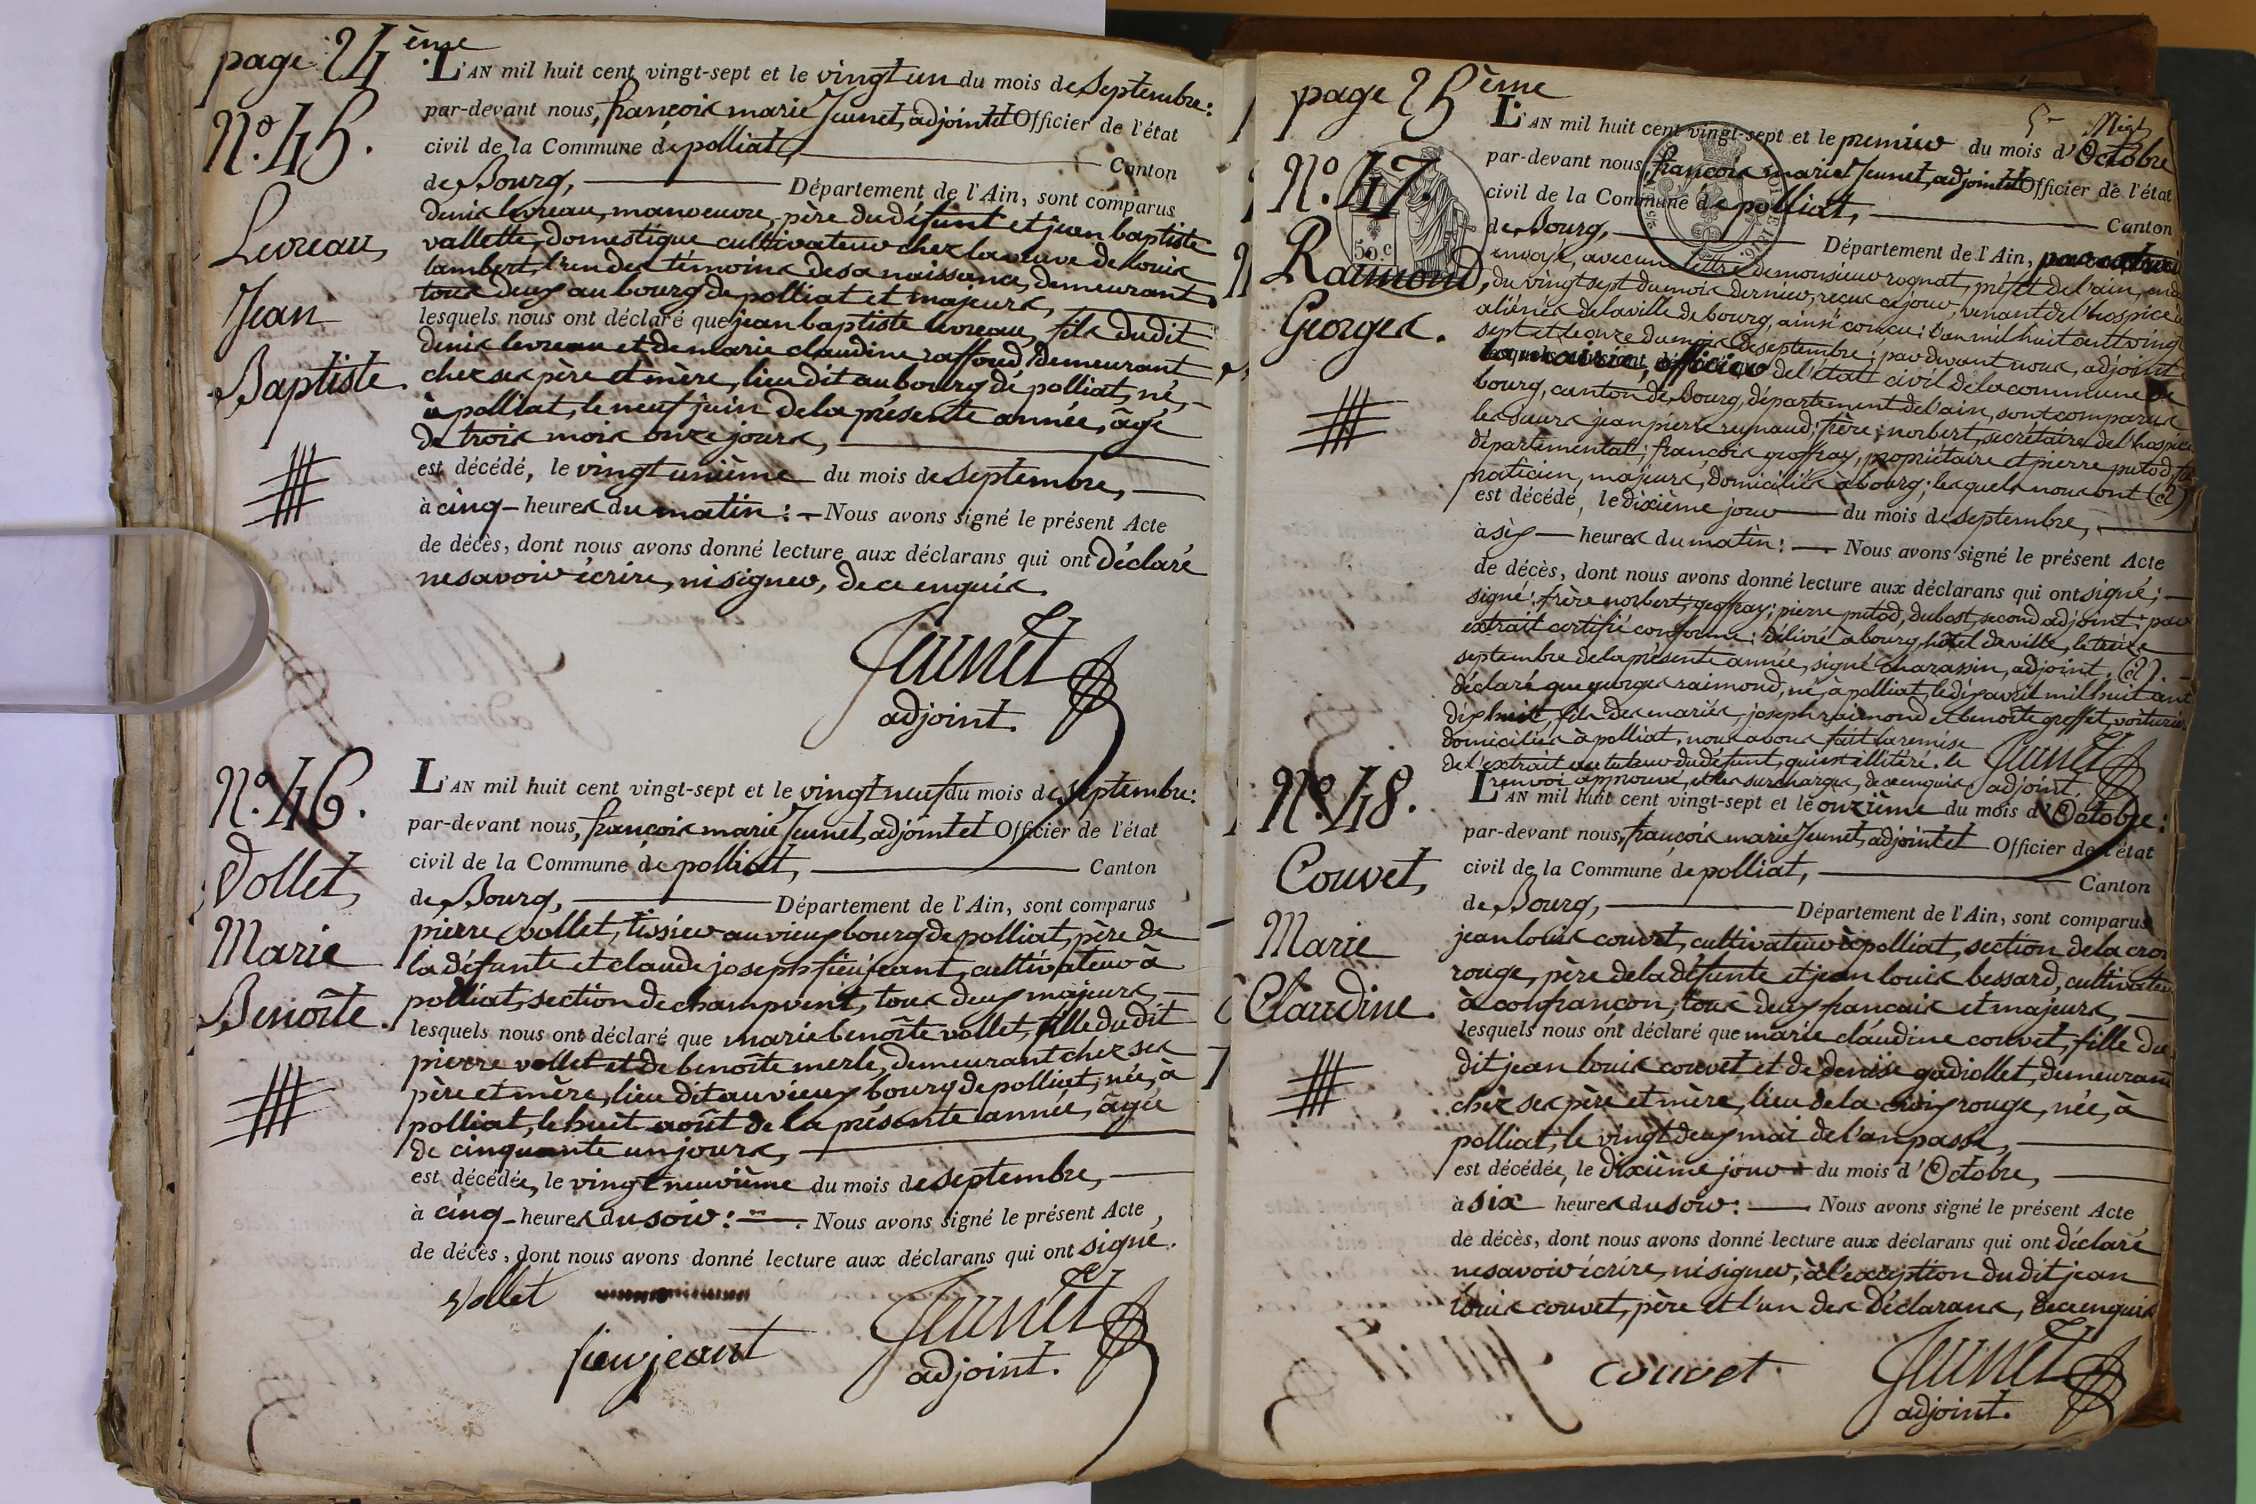 page 24ème
N.° 45.
Levreau,
Jean
Baptiste.
L'AN mil huit cent vingt-sept et le vingt un du mois de septembre:
par-devant nous, françois marie Jeunet, adjoint et Officier de l'état
civil de la Commune de polliat, Canton
de Bourg, Département de l'Ain, sont comparus
denis levreau, manoeuvre, père du défunt et jean baptiste
vallette, domestique cultivateur chez la veuve de louis
lambert, l'un des témoins de sa naissance, demeurant
tous deux au bourg de polliat et majeurs,
lesquels nous ont déclaré que jean baptiste levreau, fils dudit
denis levreau et de marie claudine raffoud, demeurant
chez ses père et mère, lieu dit au bourg de polliat, né,
à polliat, le neuf juin de la présente année, âgé
de trois mois onze jours,
est décédé, le vingt unième du mois de septembre,
à cinq heures du matin: Nous avons signé le présent Acte
de décès, dont nous avons donné lecture aux déclarans qui ont déclaré
ne savoir écrire, ni signer, de ce enquis.
Jeunet
adjoint.
N.° 46.
Vollet,
Marie
Benoîte.
L'AN mil huit cent vingt-sept et le vingt neuf du mois de septembre:
par-devant nous, françois marie Jeunet, adjoint et Officier de l'état
civil de la Commune de polliat, Canton
de Bourg, Département de l'Ain, sont comparus
pierre vollet, tissier au vieux bourg de polliat, père de
la défunte et claude joseph fieujeant, cultivateur à
polliat, section de champvent, tous deux majeurs,
lesquels nous ont déclaré que marie benoîte vollet, fille dudit
pierre vollet et de benoîte merle, demeurant chez ses
père et mère, lieu dit au vieux bourg de polliat, née, à
polliat, le huit août de la présente année, âgée
de cinquante un jours,
est décédée, le vingt neuvième du mois de septembre,
à cinq heures du soir: Nous avons signé le présent Acte,
de décès, dont nous avons donné lecture aux déclarans qui ont signé.
Vollet
fieujeant
Jeunet
adjoint.
page 25ème
N.° 47.
50 c
Raimond,
Georges.
L'AN mil huit cent vingt-sept et le premier du mois d'Octobre
par-devant nous, françois marie Jeunet, adjoint et Officier de l'état
civil de la Commune de polliat, Canton
de Bourg, Département de l'Ain,
envoyé, avec une lettre de monsieur rognat, préfet de l'ain, en date
du vingt sept du mois dernier, reçue ce jour, venant de l'hospice des
aliénés de la ville de bourg, ainsi conçu: L'an mil huit cent vingt
sept et le onze du mois de septembre; par devant nous, adjoint à
la mairie, officier de l'état civil de la commune de
bourg, canton de Bourg, département de l'ain, sont comparus
les sieurs jean pierre reynaud; frère; norbert, secrétaire de l'hospice
départemental; françois geoffray, propriétaire et pierre putod,
praticien, majeurs, domiciliés à bourg; lesquels nous ont (a)
est décédé, le dixième jour du mois de septembre,
à six heures du matin: Nous avons signé le présent Acte
de décès, dont nous avons donné lecture aux déclarans qui ont signé;
signé: frère norbert; geoffray; pierre putod, dubost, second adjoint; par
extrait certifié conforme: délivré à bourg, hôtel de ville, le treize
septembre de la présente année, signé charassin, adjoint. (a)
déclaré que georges raimond, né, à polliat, le dix avril mil huit cent
dix huit, fils des mariés joseph raimond et benoîte greffet, voiturier
domiciliés à polliat. nous avons fait la remise
de l'extrait au tuteur du défunt, qui est illitéré. le
renvoi approuvé, et les surcharges, de ce enquis
Jeunet
adjoint.
N.° 48.
Couvet,
Marie
Claudine.
L'AN mil huit cent vingt-sept et le onzième du mois d'Octobre:
par-devant nous, françois marie Jeunet, adjoint et Officier de l'état
civil de la Commune de polliat, Canton
de Bourg, Département de l'Ain, sont comparus
jean louis couvet, cultivateur à polliat, section de la croix
rouge, père de la défunte et jean louis bessard, cultivateur
à confrançon, tous deux français et majeurs,
lesquels nous ont déclaré que marie claudine couvet, fille du
dit jean louis couvet et de denise gadiollet, demeurant
chez ses père et mère, lieu de la croix rouge, née, à
polliat, le vingt deux mai de l'an passé,
est décédée, le dixième jour du mois d'Octobre,
à six heures du soir: Nous avons signé le présent Acte
de décès, dont nous avons donné lecture aux déclarans qui ont déclaré
ne savoir écrire, ni signer, à l'exception du dit jean
louis couvet, père et l'un des déclarans, de ce enquis
couvet.
Jeunet
adjoint.